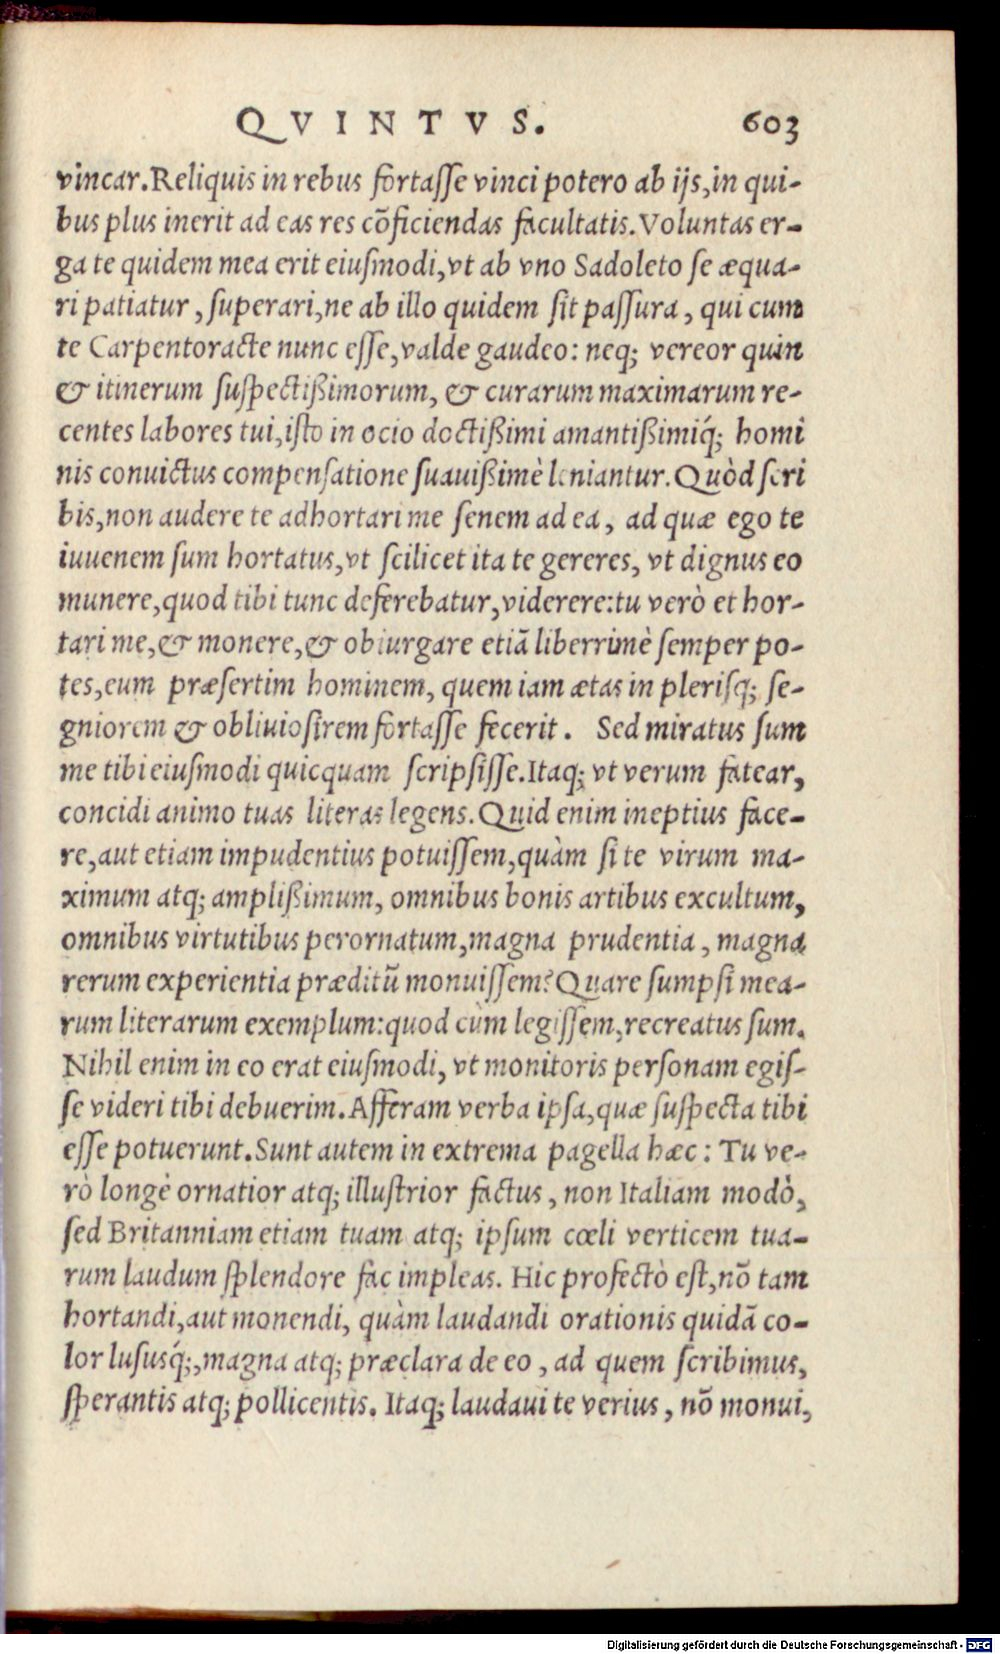 QVINTVS. 603
vincar. Reliquis in rebus fortaſſe vinci potero ab ijs, in qui-
bus plus inerit ad eas res cõficiendas facultatis. Voluntas er-
ga te quidem mea erit eiuſmodi, vt ab vno Sadoleto ſe æqua-
ri patiatur, ſuperari, ne ab illo quidem ſit paſſura, qui cum
te Carpentoracte nunc eſſe, valde gaudeo: neq; vereor quin
& itinerum ſuſpectißimorum, & curarum maximarum re-
centes labores tui, iſto in ocio doctißimi amantißimiq́; homi
nis convictus compenſatione ſuauißimè leniantur. Quòd ſcri
bis, non audere te adhortari me ſenem ad ea, ad quæ ego te
iuuenem ſum hortatus, vt ſcilicet ita te gereres, vt dignus eo
munere, quod tibi tunc deferebatur, viderere: tu verò et hor-
tari me, & monere, & obiurgare etiã liberrimè ſemper po-
tes, eum præſertim hominem, quem iam ætas in pleriſq; ſe-
gniorem & obliuioſirem fortaſſe fecerit. Sed miratus ſum
me tibi eiuſmodi quicquam ſcripſiſſe. Itaq; vt verum fatear,
concidi animo tuas literas legens. Quid enim ineptius face-
re, aut etiam impudentius potuiſſem, quàm ſi te virum ma-
ximum atq; amplißimum, omnibus bonis artibus excultum,
omnibus virtutibus perornatum, magna prudentia, magna
rerum experientia præditũ monuiſſem? Quare ſumpſi mea-
rum literarum exemplum: quod cùm legiſſem, recreatus ſum.
Nihil enim in eo erat eiuſmodi, vt monitoris perſonam egiſ-
ſe videri tibi debuerim. Afferam verba ipſa, quæ ſuſpecta tibi
eſſe potuerunt. Sunt autem in extrema pagella hæc: Tu ve-
rò longè ornatior atq; illuſtrior factus, non Italiam modò,
ſed Britanniam etiam tuam atq; ipſum cœli verticem tua-
rum laudum ſplendore fac impleas. Hic profectò eſt, nõ tam
hortandi, aut monendi, quàm laudandi orationis quidã co-
lor luſusq́;, magna atq; præclara de eo, ad quem ſcribimus,
ſperantis atq; pollicentis. Itaq; laudaui te verius, nõ monui,
Digitalisierung gefördert durch die Deutsche Forschungsgemeinschaft - DFG